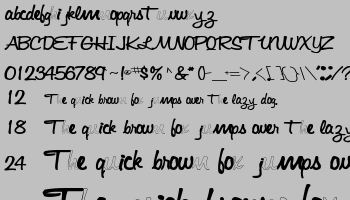 abcdefghijklmnopqrstuvwxyz
ABCDEFGHIJKLMNOPQRSTUVWXYZ
0123456789
12 The quick brown fox jumps over the lazy dog.
18 The quick brown fox jumps over the lazy
24 The quick brown fox jumps ov
The quick brown fo